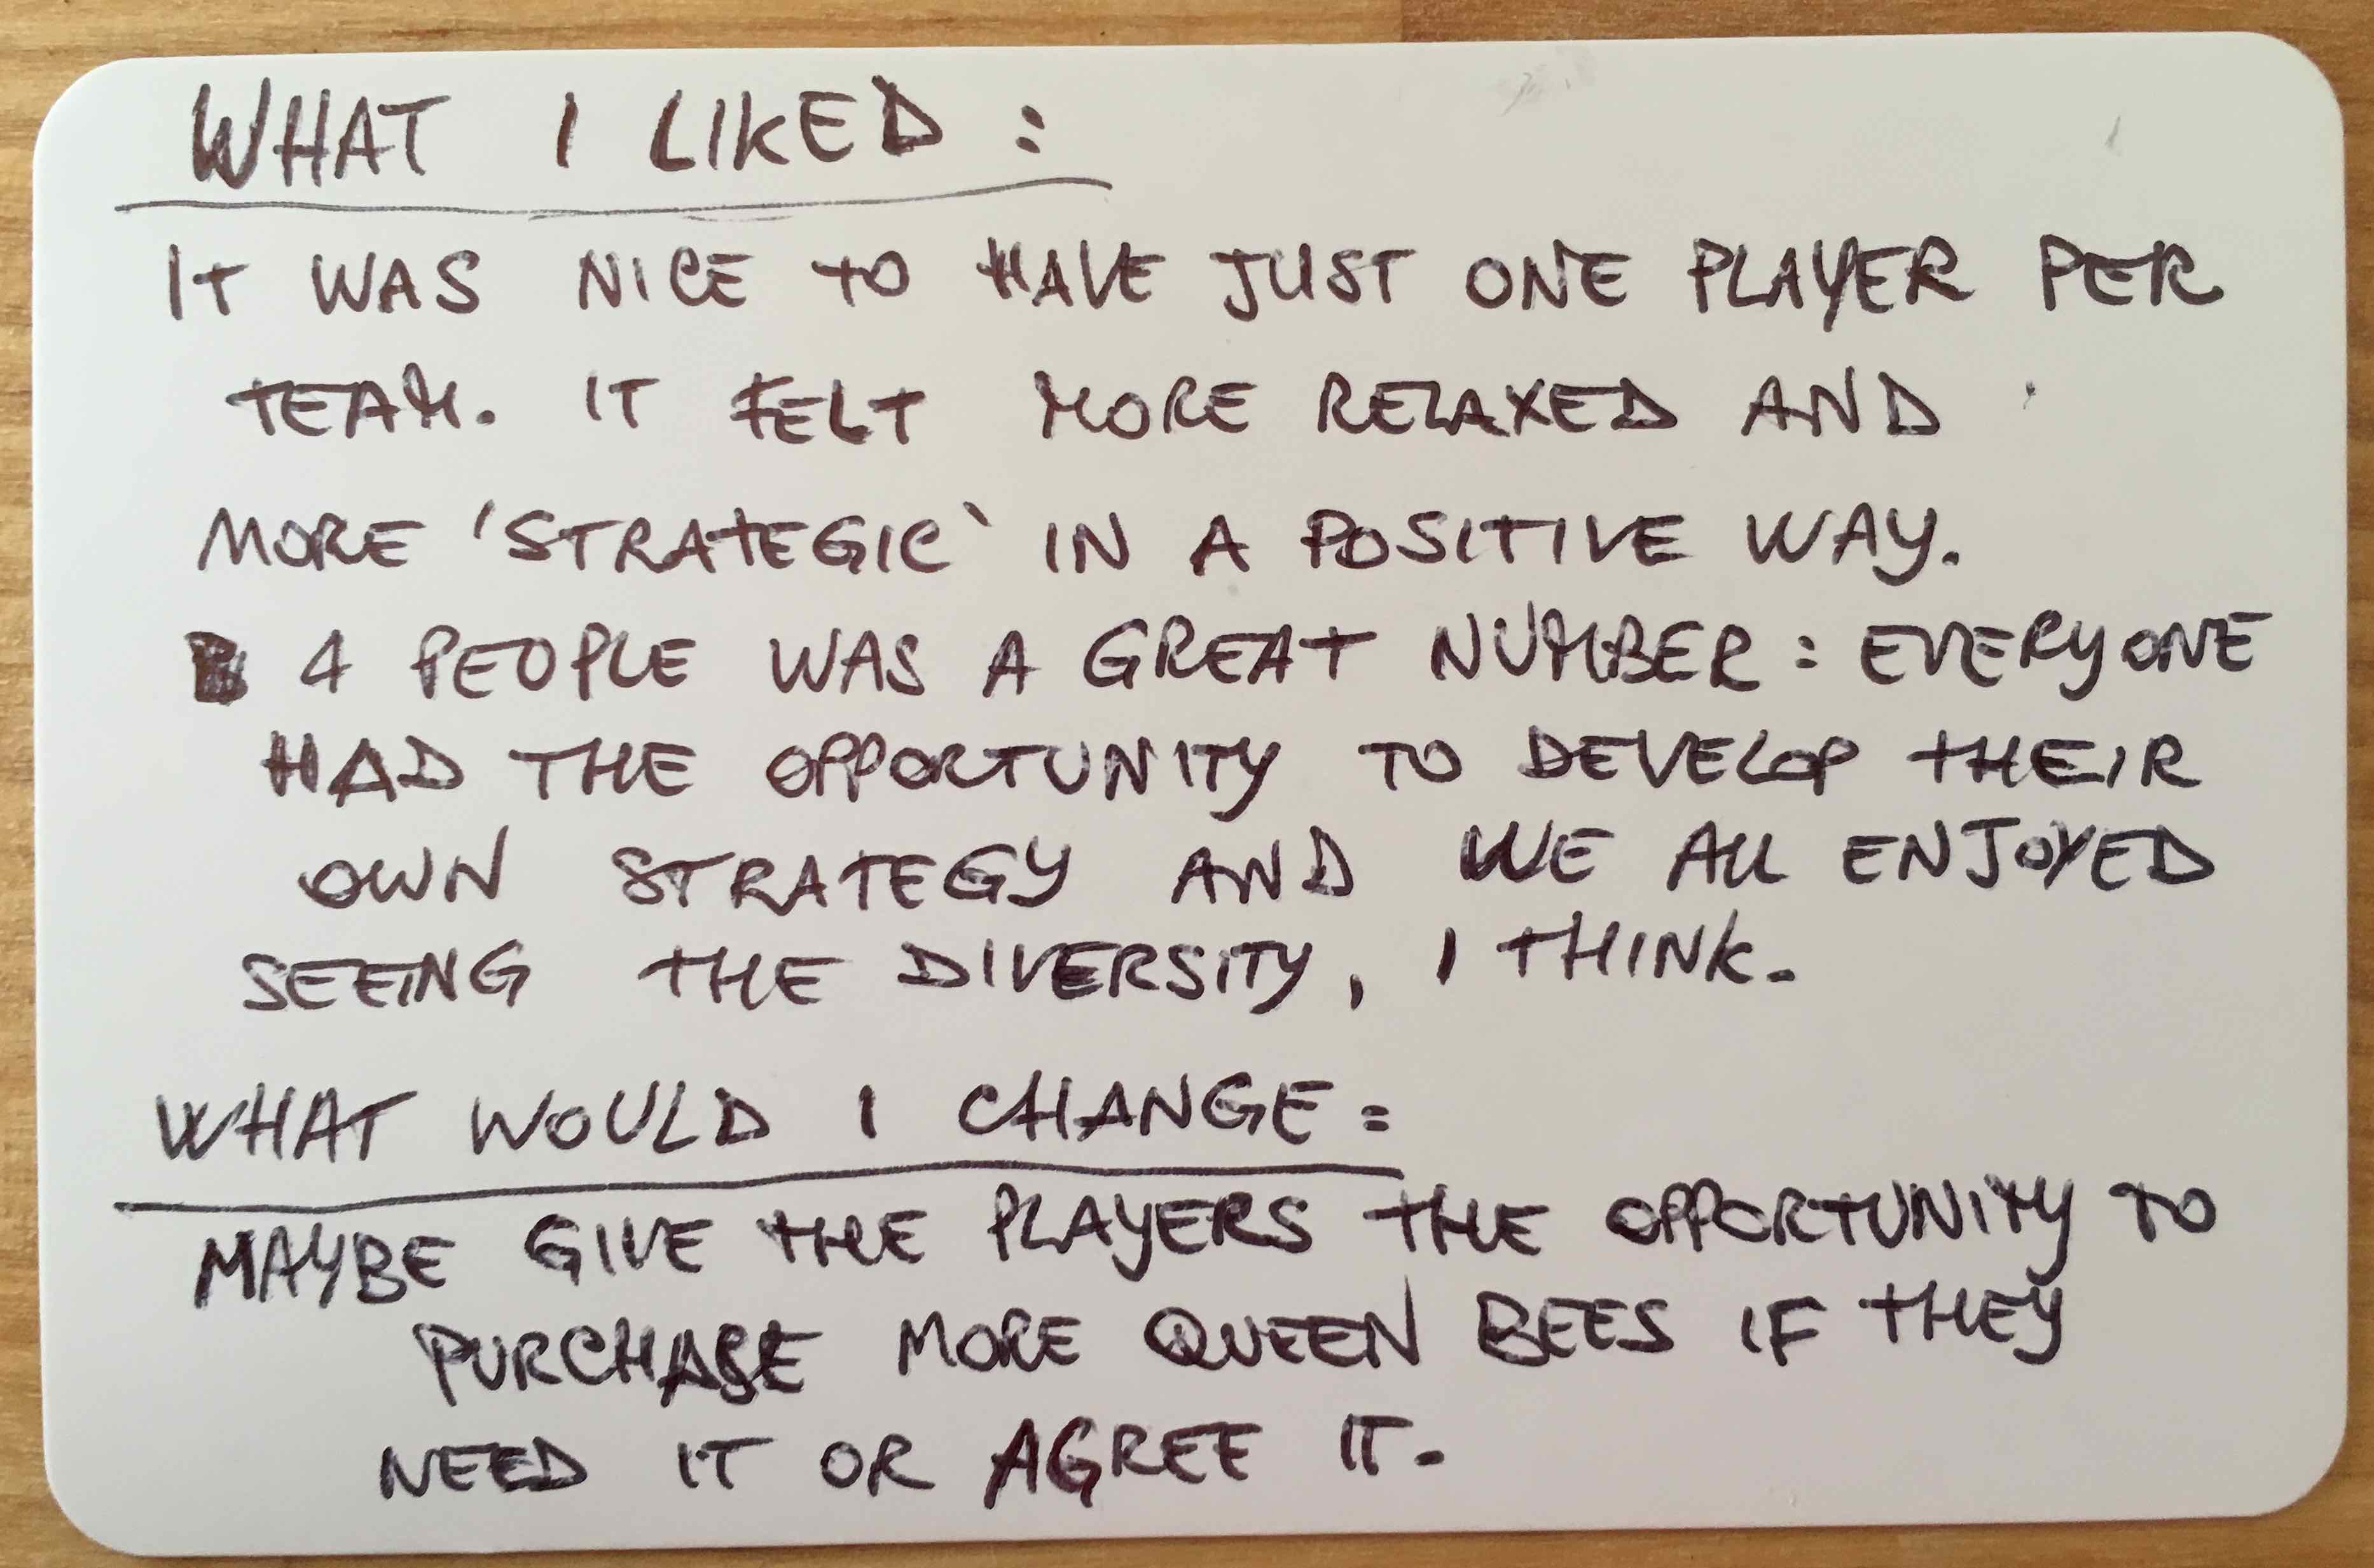 WHAT I LIKED :
IT WAS NICE TO HAVE JUST ONE PLAYER PER
TEAM. IT FELT MORE RELAXED AND
MORE 'STRATEGIC' IN A POSITIVE WAY.
4 PEOPLE WAS A GREAT NUMBER : EVERYONE
HAD THE OPPORTUNITY TO DEVELOP THEIR
OWN STRATEGY AND WE ALL ENJOYED
SEEING THE DIVERSITY, I THINK.
WHAT WOULD I CHANGE :
MAYBE GIVE THE PLAYERS THE OPPORTUNITY TO
PURCHASE MORE QUEEN BEES IF THEY
NEED IT OR AGREE IT.